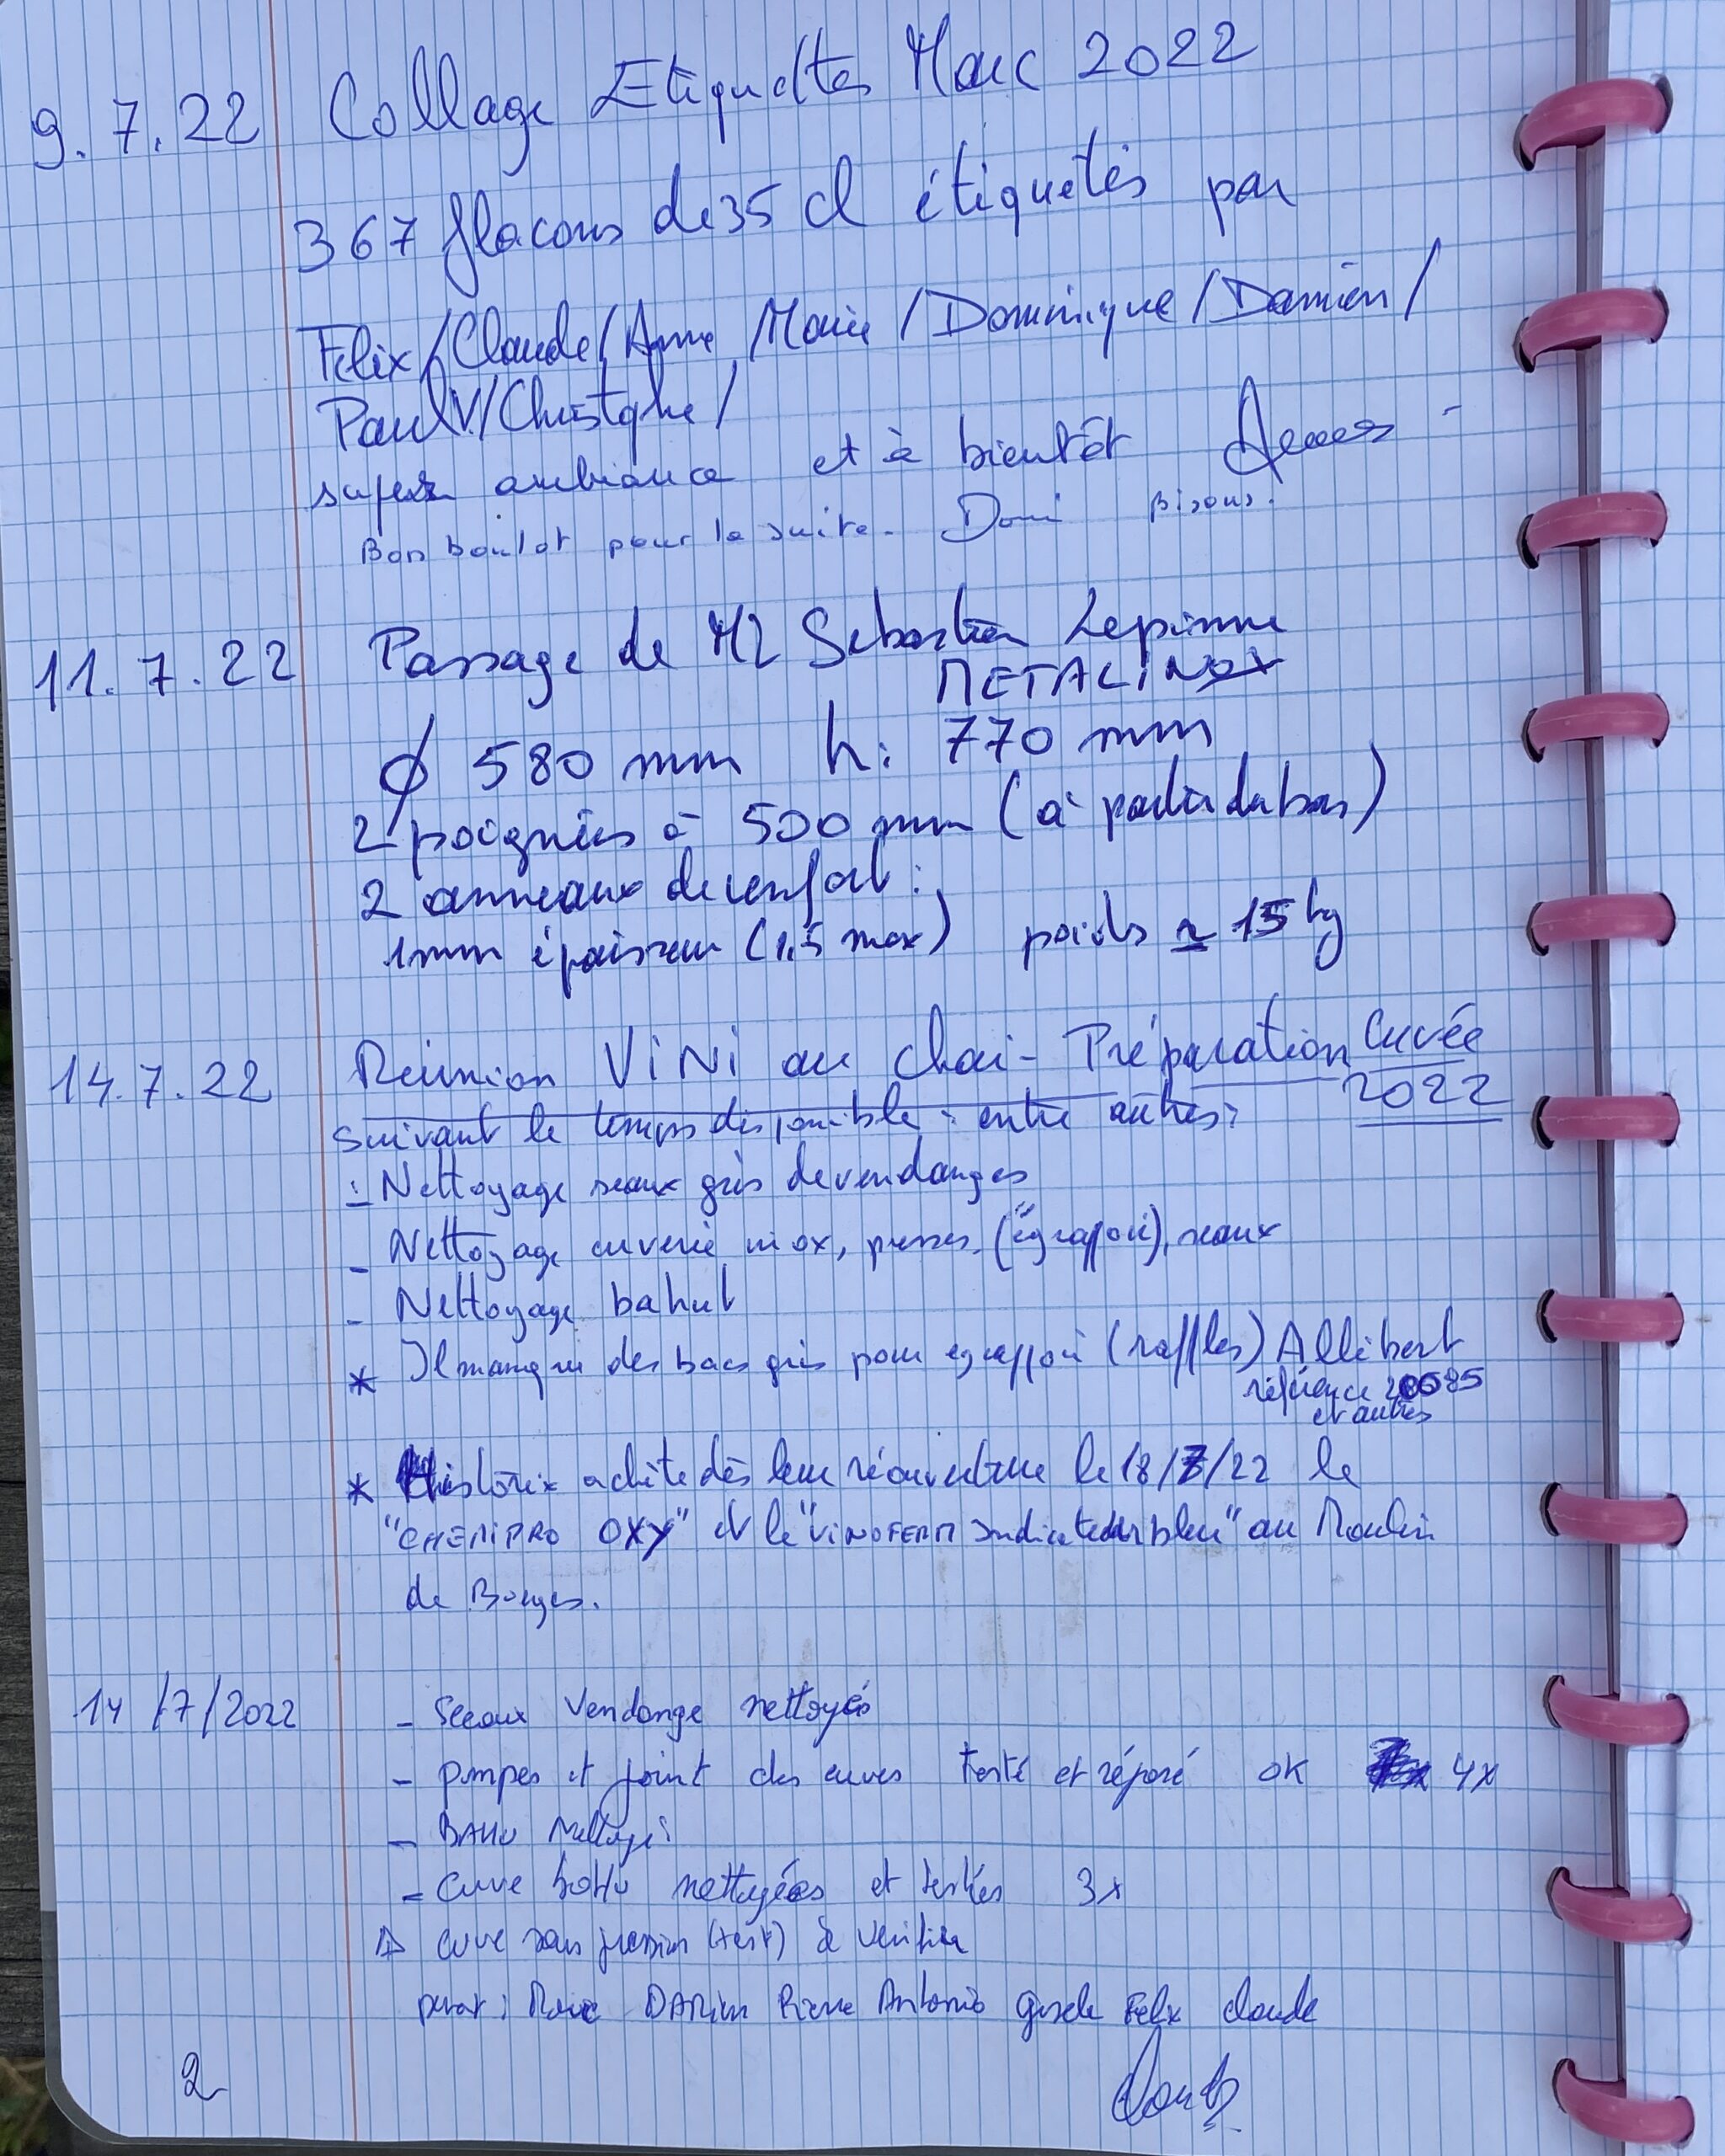 9.7.22 Collage Etiquettes Marc 2022
367 flacons de 35 cl étiquetés par
Felix/Claude/Anne Marie/Dominique/Damien/
Paul V/Christophe/
super ambiance et à bientôt
Bon boulot pour la suite. Domi Bisous.
11.7.22 Passage de Mr Sebastien Lepinne
METALINOX
φ 580 mm h: 770 mm
2 poignées à 500 mm (à partir du bas)
2 anneaux de renfort:
1mm épaisseur (1,5 max) poids ≃ 15 kg
14.7.22 Réunion ViNi au chai - Préparation Cuvée
2022
Suivant le temps disponible: entre autres:
- Nettoyage seaux gris de vendanges
- Nettoyage cuverie inox, presses, ("égrappoir), seaux
- Nettoyage bahut
* Il manque des bacs gris pour egrappoir (raffles) Allibert
référence 20585
et autres
* achète dès leur réouverture le 18/7/22 le
"CHEMIPRO OXY" et le "VINOFERM Indicateur bleu" au Moulin
de Bierges.
14/7/2022 - Seeaux Vendange nettoyés
- pompes et joint des cuves testé et réparé OK 4x
- BAHU Nettoyé
- Cuve bohu nettoyées et testées 3x
cuve sous pression (test) à vérifier
Marc DAMien Pierre Antonio Gisele Felix claude
2